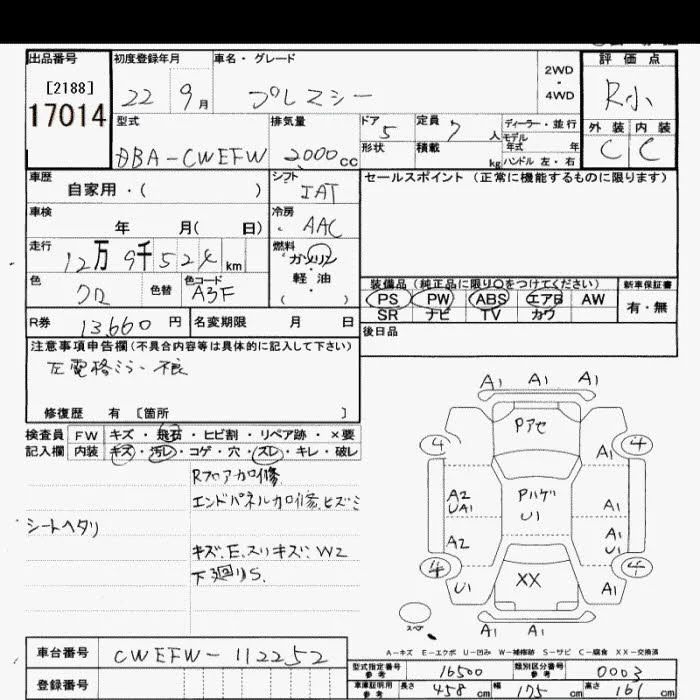 出品番号 初度登録年月 車名・グレード 評価点
[2188]
17014
22 9月 プレマシー 2WD・4WD R小
型式 排気量 ドア 5 定員 7人 ディーラー・並行 外装 内装
形状 積載 kg モデル年式 年 ハンドル 左・右 C C
DBA-CWEFW 2000cc
車歴 自家用・( ) シフト IAT セールスポイント (正常に機能するものに限ります)
車検 年 月( 日) 冷房 AAC
走行 12万9千524km 燃料 ガソリン・軽油・( )
色 クロ 色替 色コード A3F 装備品 (純正品に限り〇をつけてください) 新車保証書
PS PW ABS エアB AW 有・無
SR ナビ TV カワ
R券 13,660円 名変期限 月 日 後日品
注意事項申告欄(不具合内容等は具体的に記入して下さい)
左電格ミラー不良
修復歴 有 [箇所 ]
検査員記入欄 FW キズ・飛石・ヒビ割・リペア跡・×要
内装 キズ・汚レ・コゲ・穴・スレ・キレ・破レ
Rフロアカロ修
エンドパネルカロ修、ヒズミ
シートヘタリ
キズ、E、スリキズ、W2
下廻りS
A1 A1 A1
Pアセ
4 4
A1
A2
UA1
Pハゲ
U1
A1
A2
A1
U1
4 4
U1 XX A1
スペア
A1 A1
A-キズ E-エクボ U-凹み W-補修跡 S-サビ C-腐食 XX-交換済
車台番号 CWEFW-112252
型式指定番号 参考 16500 類別区分番号 参考 0003
登録番号
車庫証明用 参考 長さ 458cm 幅 175cm 高さ 161cm